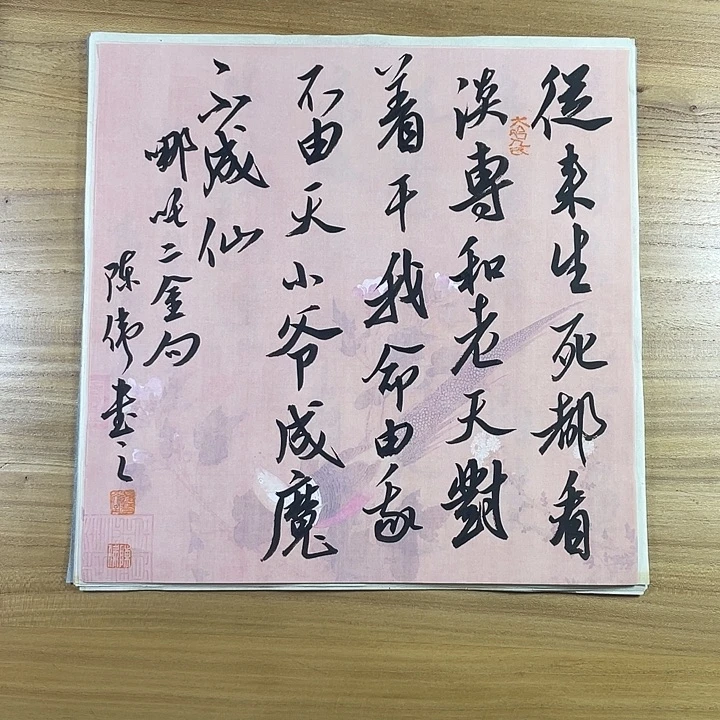 從来生死都看
淡專和老天對
着干我命由我
不由天小爷成魔
不成仙
哪吒二金句
陈伟书之